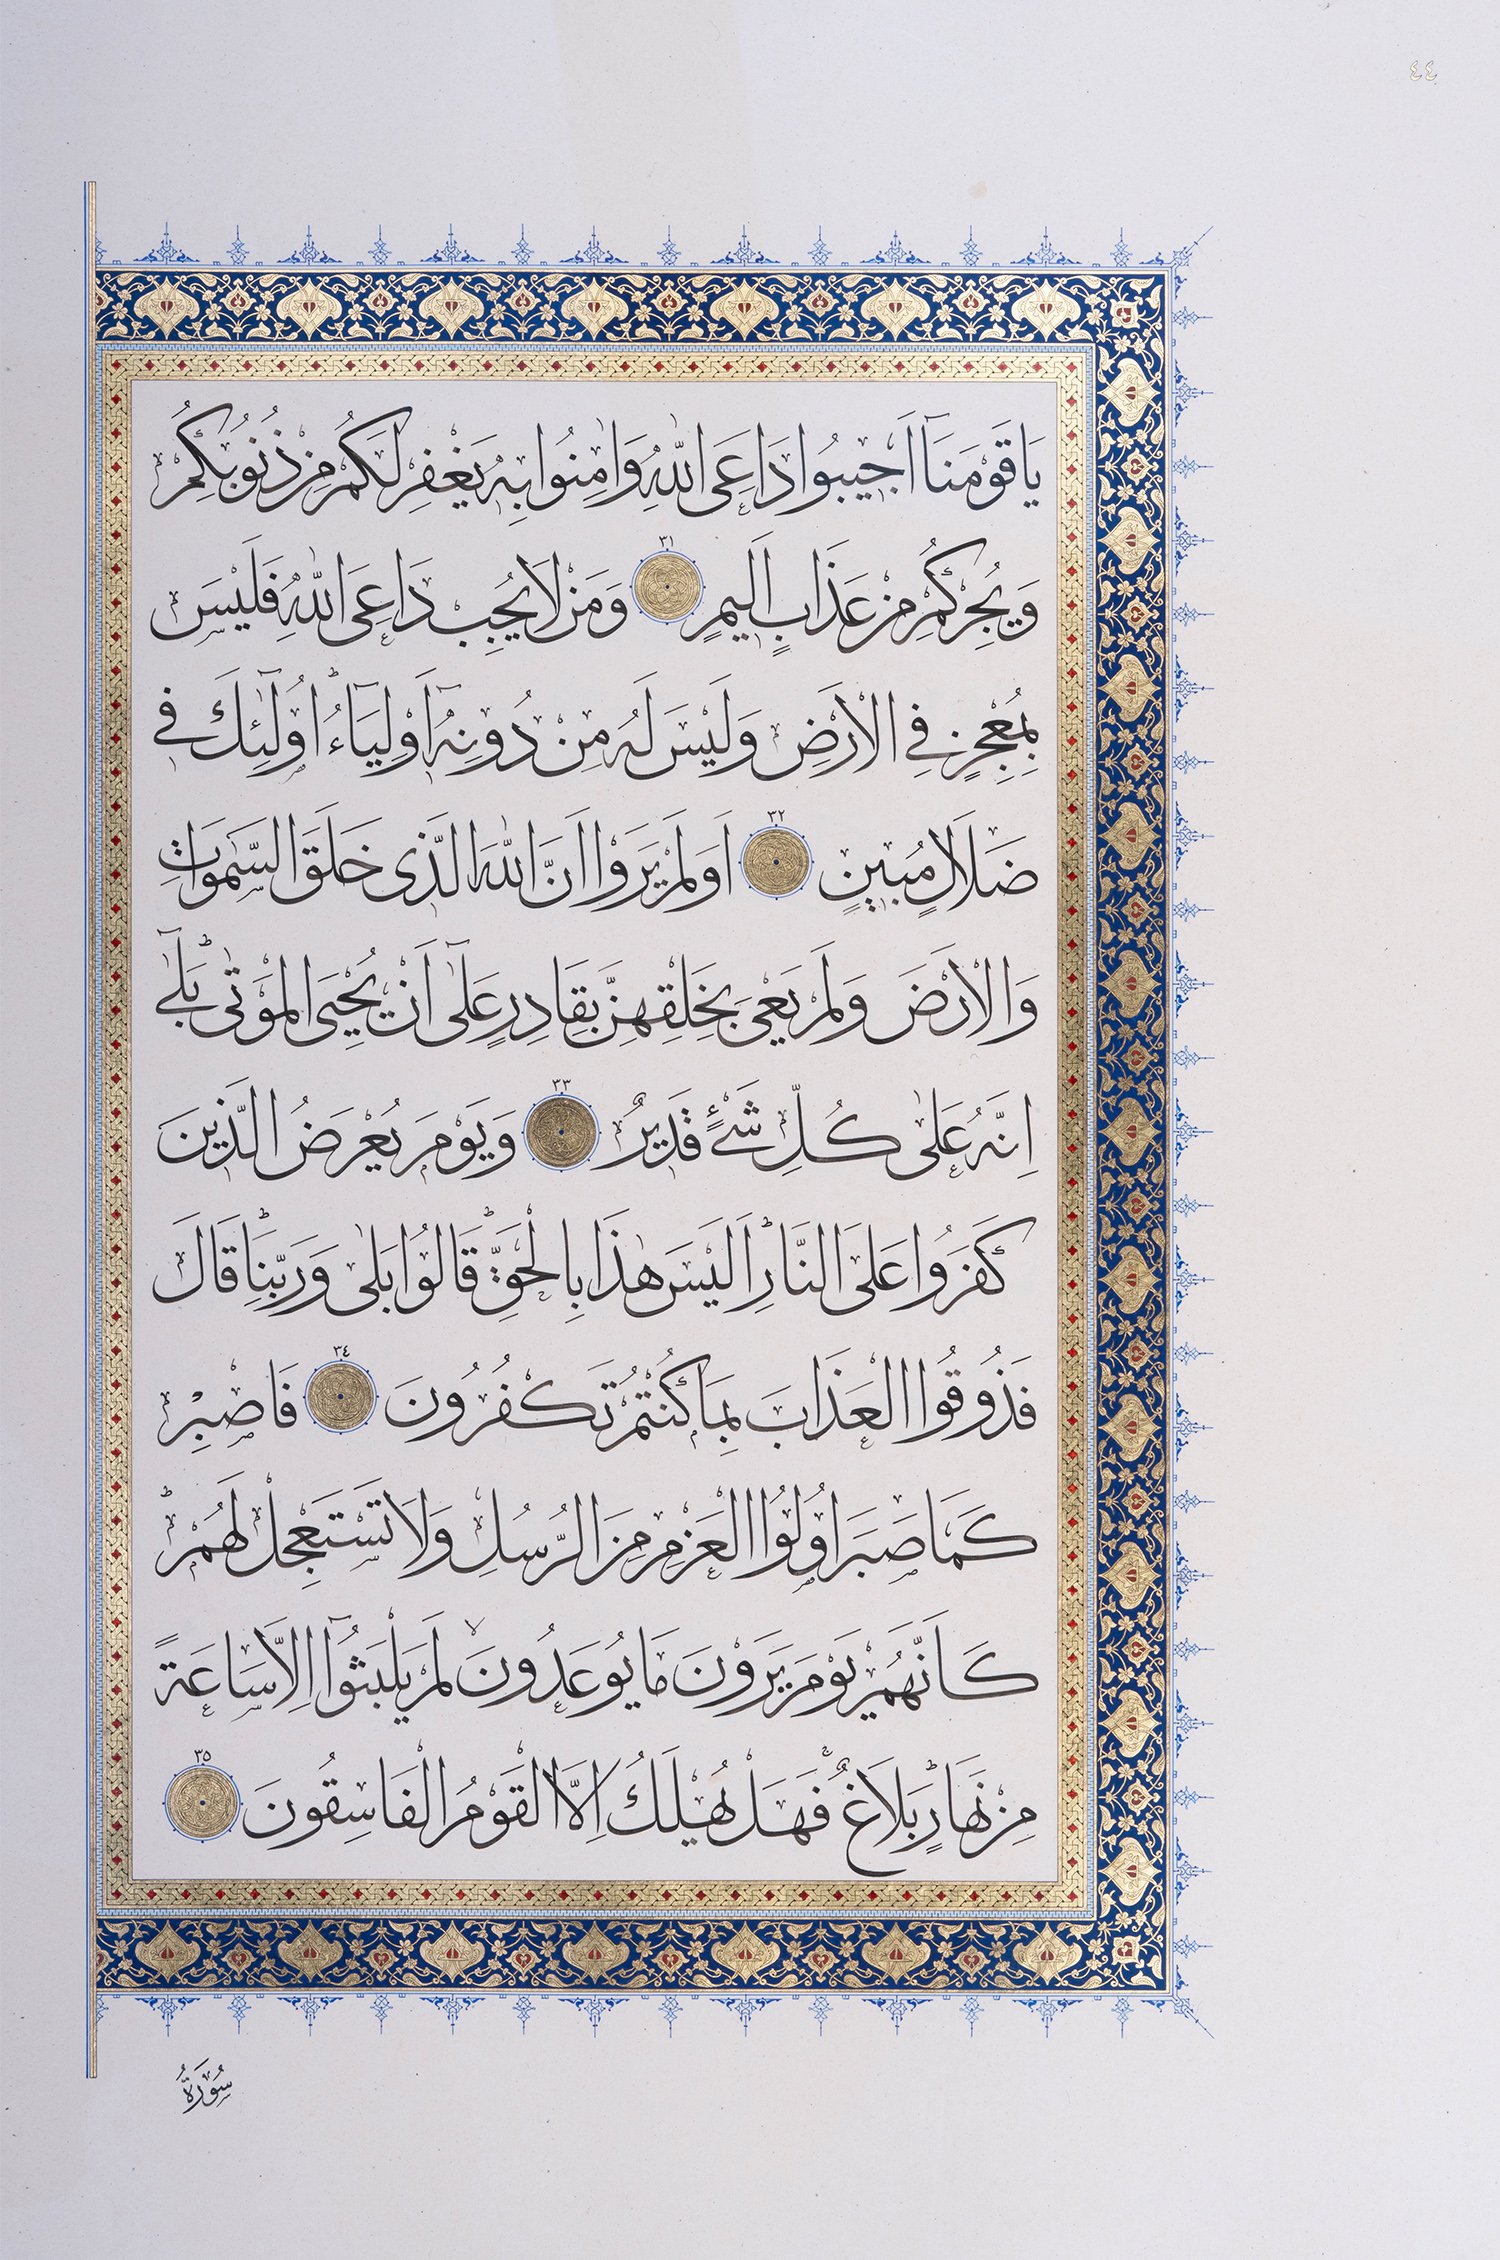 ٤٤
يَا قَوْمَنَٓا اَجٖيبُوا دَاعِيَ اللّٰهِ وَاٰمِنُوا بِهٖ يَغْفِرْ لَكُمْ مِنْ ذُنُوبِكُمْ
وَيُجِرْكُمْ مِنْ عَذَابٍ اَلٖيمٍ ٣١ وَمَنْ لَا يُجِبْ دَاعِيَ اللّٰهِ فَلَيْسَ
بِمُعْجِزٍ فِي الْاَرْضِ وَلَيْسَ لَهُ مِنْ دُونِهٖٓ اَوْلِيَٓاءُۜ اُو۬لٰٓئِكَ فٖي
ضَلَالٍ مُبٖينٍ ٣٢ اَوَلَمْ يَرَوْا اَنَّ اللّٰهَ الَّذٖي خَلَقَ السَّمٰوَاتِ
وَالْاَرْضَ وَلَمْ يَعْيَ بِخَلْقِهِنَّ بِقَادِرٍ عَلٰٓى اَنْ يُحْيِيَ الْمَوْتٰىۜ بَلٰٓى
اِنَّهُ عَلٰى كُلِّ شَيْءٍ قَدٖيرٌ ٣٣ وَيَوْمَ يُعْرَضُ الَّذٖينَ
كَفَرُوا عَلَى النَّارِۜ اَلَيْسَ هٰذَا بِالْحَقِّۜ قَالُوا بَلٰى وَرَبِّنَاۜ قَالَ
فَذُوقُوا الْعَذَابَ بِمَا كُنْتُمْ تَكْفُرُونَ ٣٤ فَاصْبِرْ
كَمَا صَبَرَ اُو۬لُوا الْعَزْمِ مِنَ الرُّسُلِ وَلَا تَسْتَعْجِلْ لَهُمْۜ
كَاَنَّهُمْ يَوْمَ يَرَوْنَ مَا يُوعَدُونَۙ لَمْ يَلْبَثُٓوا اِلَّا سَاعَةً
مِنْ نَهَارٍۜ بَلَاغٌۚ فَهَلْ يُهْلَكُ اِلَّا الْقَوْمُ الْفَاسِقُونَ ٣٥
سُورَةُ